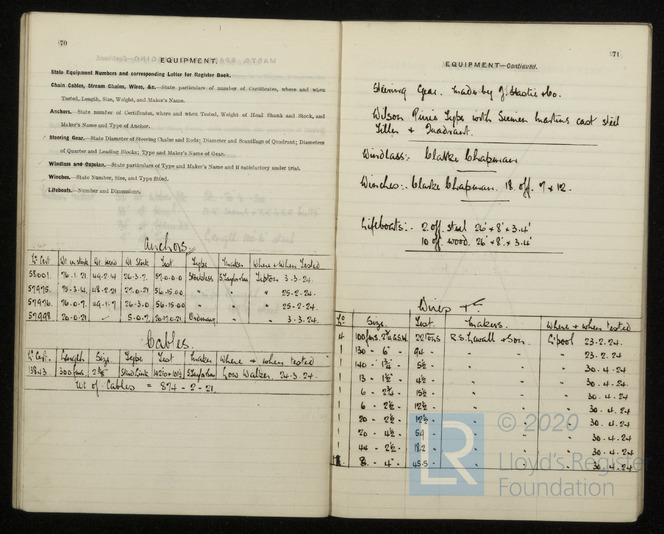 70
EQUIPMENT.
State Equipment Numbers and corresponding Letter for Register Book.
Chain Cables, Stream Chains, Wires, &c.—State particulars of number of Certificates, where and when
Tested, Length, Size, Weight, and Maker's Name.
Anchors.—State number of Certificates, where and when Tested, Weight of Head Shank and Stock, and
Maker's Name and Type of Anchor.
Steering Gear.—State Diameter of Steering Chains and Rods; Diameter and Scantlings of Quadrant; Diameters
of Quarter and Leading Blocks; Type and Maker's Name of Gear.
Windlass and Capstan.—State particulars of Type and Maker's Name and if satisfactory under trial.
Winches.—State Number, Size, and Type fitted.
Lifeboats.—Number and Dimensions.
Anchors
No Cert Wt Stock Test Type Maker Where & When Tested
58001. 76.1.21 49.2.14 26.3.7. 57.0.0.0 Stockless Tipton 3.3.24.
57975. 75.3.14 48.2.21 56.15.00 " " " 25.2.24.
57976. 76.0.7. 49.1.7 26.3.0 56.15.00 " " " 25.2.24.
57998 20.0.21 5.0.7. Ordinary " " 3.3.24.
Cables.
No Cert. Length Size Type Test Maker Where & when tested
13843 300 fms Stud Link Low Walker. 24.3.24.
Wt of Cables = 874 - 2 - 21.
71
EQUIPMENT—Continued.
Steering Gear. Made by J. Hastie & Co.
Wilson Pirrie Type with Siemens Martins cast steel
Tiller & Quadrant.
Windlass: Clarke Chapman
Winches:. Clarke Chapman. 18 off. 7 x 12.
Lifeboats:. 2 off. steel 26' x 8' x 3.4'
10 off. wood. 26' x 8' x 3.4'
Wires &c.
No Size. Test. Makers. Where & when tested
4 100 fms. 22 Tons R.S. Newall & Son. L'pool 23.2.24.
1 130 - 6" 94 - " " 23.2.24
1 140 - 1¾" 5½ - " " 30.4.24
1 13 - 1½" 4½ - " " 30.4.24
1 6 - 2¾ 15½ - " " 30.4.24
1 6 - 2½ 12½ - " " 30.4.24
1 20 - 2½ 12½ - " " 30.4.24
1 20 - 4½ - " " 30.4.24
1 44 - 2½ - " " 30.4.24
8 - 4" 45.5 - " " 30.4.24
LR
© 2020
Lloyd's Register
Foundation